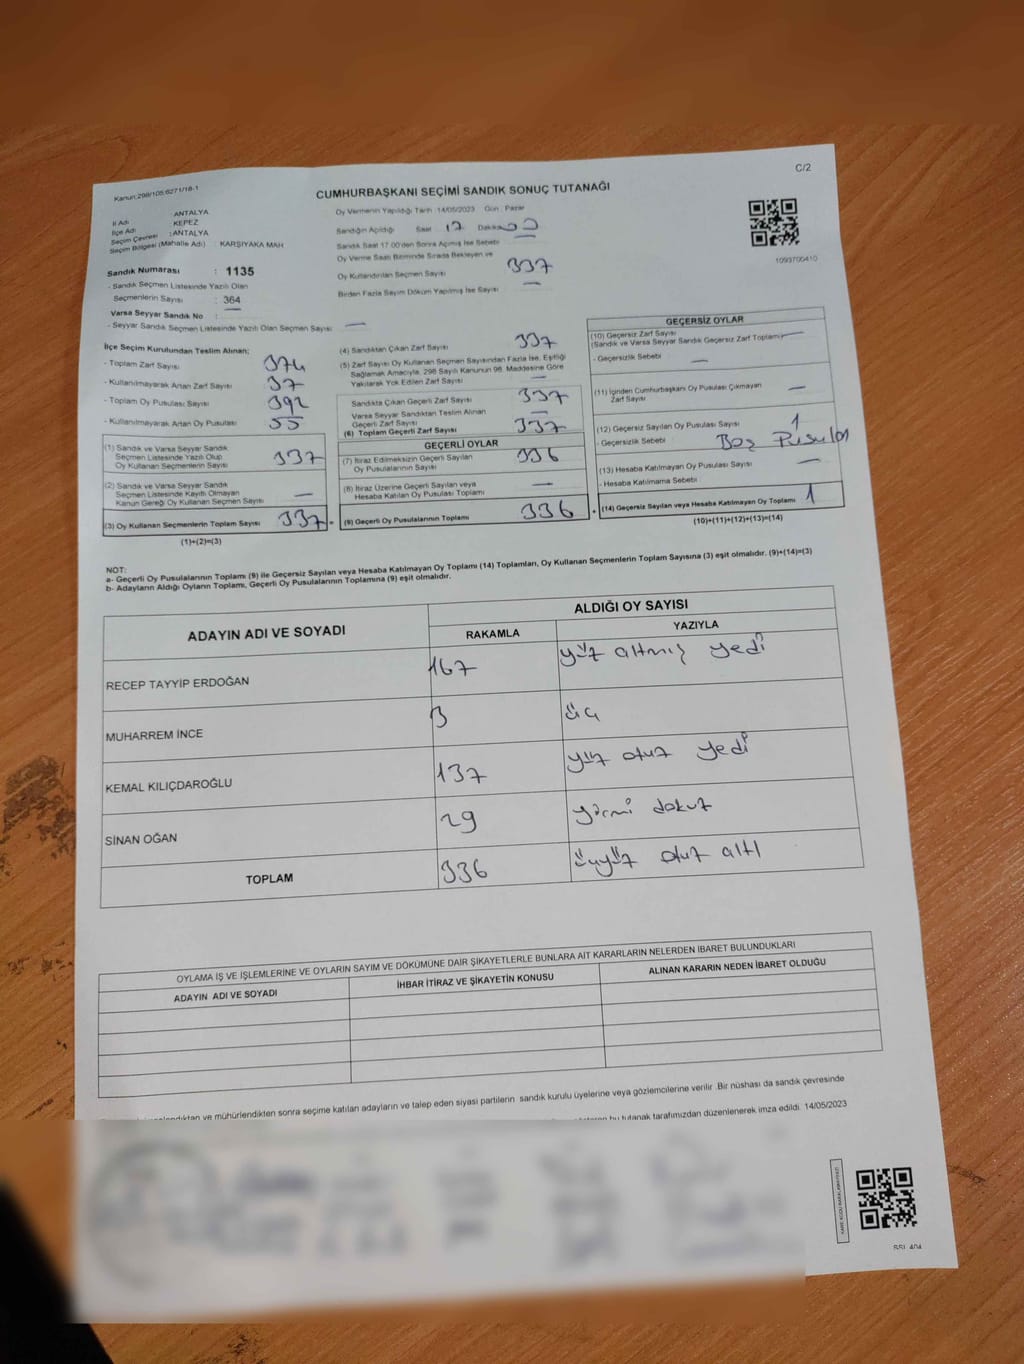 Kanun:298/105,6271/18-1
C/2
CUMHURBAŞKANI SEÇİMİ SANDIK SONUÇ TUTANAĞI
İl Adı : ANTALYA
İlçe Adı : KEPEZ
Seçim Çevresi : ANTALYA
Seçim Bölgesi (Mahalle Adı) : KARŞIYAKA MAH
Oy Vermenin Yapıldığı Tarih :14/05/2023 Gün : Pazar
Sandığın Açıldığı Saat 17 Dakika
Sandık Saat 17.00'den Sonra Açılmış İse Sebebi
Oy Verme Saati Bitiminde Sırada Bekleyen ve
Oy Kullandırılan Seçmen Sayısı 337
Birden Fazla Sayım Döküm Yapılmış İse Sayısı —
1093700410
Sandık Numarası : 1135
- Sandık Seçmen Listesinde Yazılı Olan
Seçmenlerin Sayısı : 364
Varsa Seyyar Sandık No : —
- Seyyar Sandık Seçmen Listesinde Yazılı Olan Seçmen Sayısı : —
İlçe Seçim Kurulundan Teslim Alınan;
- Toplam Zarf Sayısı 374
- Kullanılmayarak Artan Zarf Sayısı 37
- Toplam Oy Pusulası Sayısı 392
- Kullanılmayarak Artan Oy Pusulası 55
(1) Sandık ve Varsa Seyyar Sandık
Seçmen Listesinde Yazılı Olup
Oy Kullanan Seçmenlerin Sayısı 337
(2) Sandık ve Varsa Seyyar Sandık
Seçmen Listesinde Kayıtlı Olmayan
Kanun Gereği Oy Kullanan Seçmen Sayısı —
(3) Oy Kullanan Seçmenlerin Toplam Sayısı 337
(1)+(2)=(3)
(4) Sandıktan Çıkan Zarf Sayısı 337
(5) Zarf Sayısı Oy Kullanan Seçmen Sayısından Fazla İse, Eşitliği
Sağlamak Amacıyla, 298 Sayılı Kanunun 98. Maddesine Göre
Yakılarak Yok Edilen Zarf Sayısı —
Sandıkta Çıkan Geçerli Zarf Sayısı 337
Varsa Seyyar Sandıktan Teslim Alınan
Geçerli Zarf Sayısı —
(6) Toplam Geçerli Zarf Sayısı 337
GEÇERLİ OYLAR
(7) İtiraz Edilmeksizin Geçerli Sayılan
Oy Pusulasının Sayısı 336
(8) İtiraz Üzerine Geçerli Sayılan veya
Hesaba Katılan Oy Pusulası Toplamı —
(9) Geçerli Oy Pusulalarının Toplamı 336
GEÇERSİZ OYLAR
(10) Geçersiz Zarf Sayısı
(Sandık ve Varsa Seyyar Sandık Geçersiz Zarf Toplamı) —
- Geçersizlik Sebebi —
(11) İçinden Cumhurbaşkanı Oy Pusulası Çıkmayan
Zarf Sayısı —
(12) Geçersiz Sayılan Oy Pusulası Sayısı 1
- Geçersizlik Sebebi Boş Pusula
(13) Hesaba Katılmayan Oy Pusulası Sayısı —
- Hesaba Katılmama Sebebi
(14) Geçersiz Sayılan veya Hesaba Katılmayan Oy Toplamı 1
(10)+(11)+(12)+(13)=(14)
NOT:
a- Geçerli Oy Pusulalarının Toplamı (9) ile Geçersiz Sayılan veya Hesaba Katılmayan Oy Toplamı (14) Toplamları, Oy Kullanan Seçmenlerin Toplam Sayısına (3) eşit olmalıdır. (9)+(14)=(3)
b- Adayların Aldığı Oyların Toplamı, Geçerli Oy Pusulalarının Toplamına (9) eşit olmalıdır.
ADAYIN ADI VE SOYADI
ALDIĞI OY SAYISI
RAKAMLA YAZIYLA
RECEP TAYYİP ERDOĞAN 167 yüz altmış yedi
MUHARREM İNCE 3 üç
KEMAL KILIÇDAROĞLU 137 yüz otuz yedi
SİNAN OĞAN 29 yirmi dokuz
TOPLAM 336 üçyüz otuz altı
OYLAMA İŞ VE İŞLEMLERİNE VE OYLARIN SAYIM VE DÖKÜMÜNE DAİR ŞİKAYETLERLE BUNLARA AİT KARARLARIN NELERDEN İBARET BULUNDUKLARI
ADAYIN ADI VE SOYADI İHBAR İTİRAZ VE ŞİKAYETİN KONUSU ALINAN KARARIN NEDEN İBARET OLDUĞU
ve mühürlendikten sonra seçime katılan adayların ve talep eden siyasi partilerin sandık kurulu üyelerine veya gözlemcilerine verilir .Bir nüshası da sandık çevresinde
bu tutanak tarafımızdan düzenlenerek imza edildi. 14/05/2023